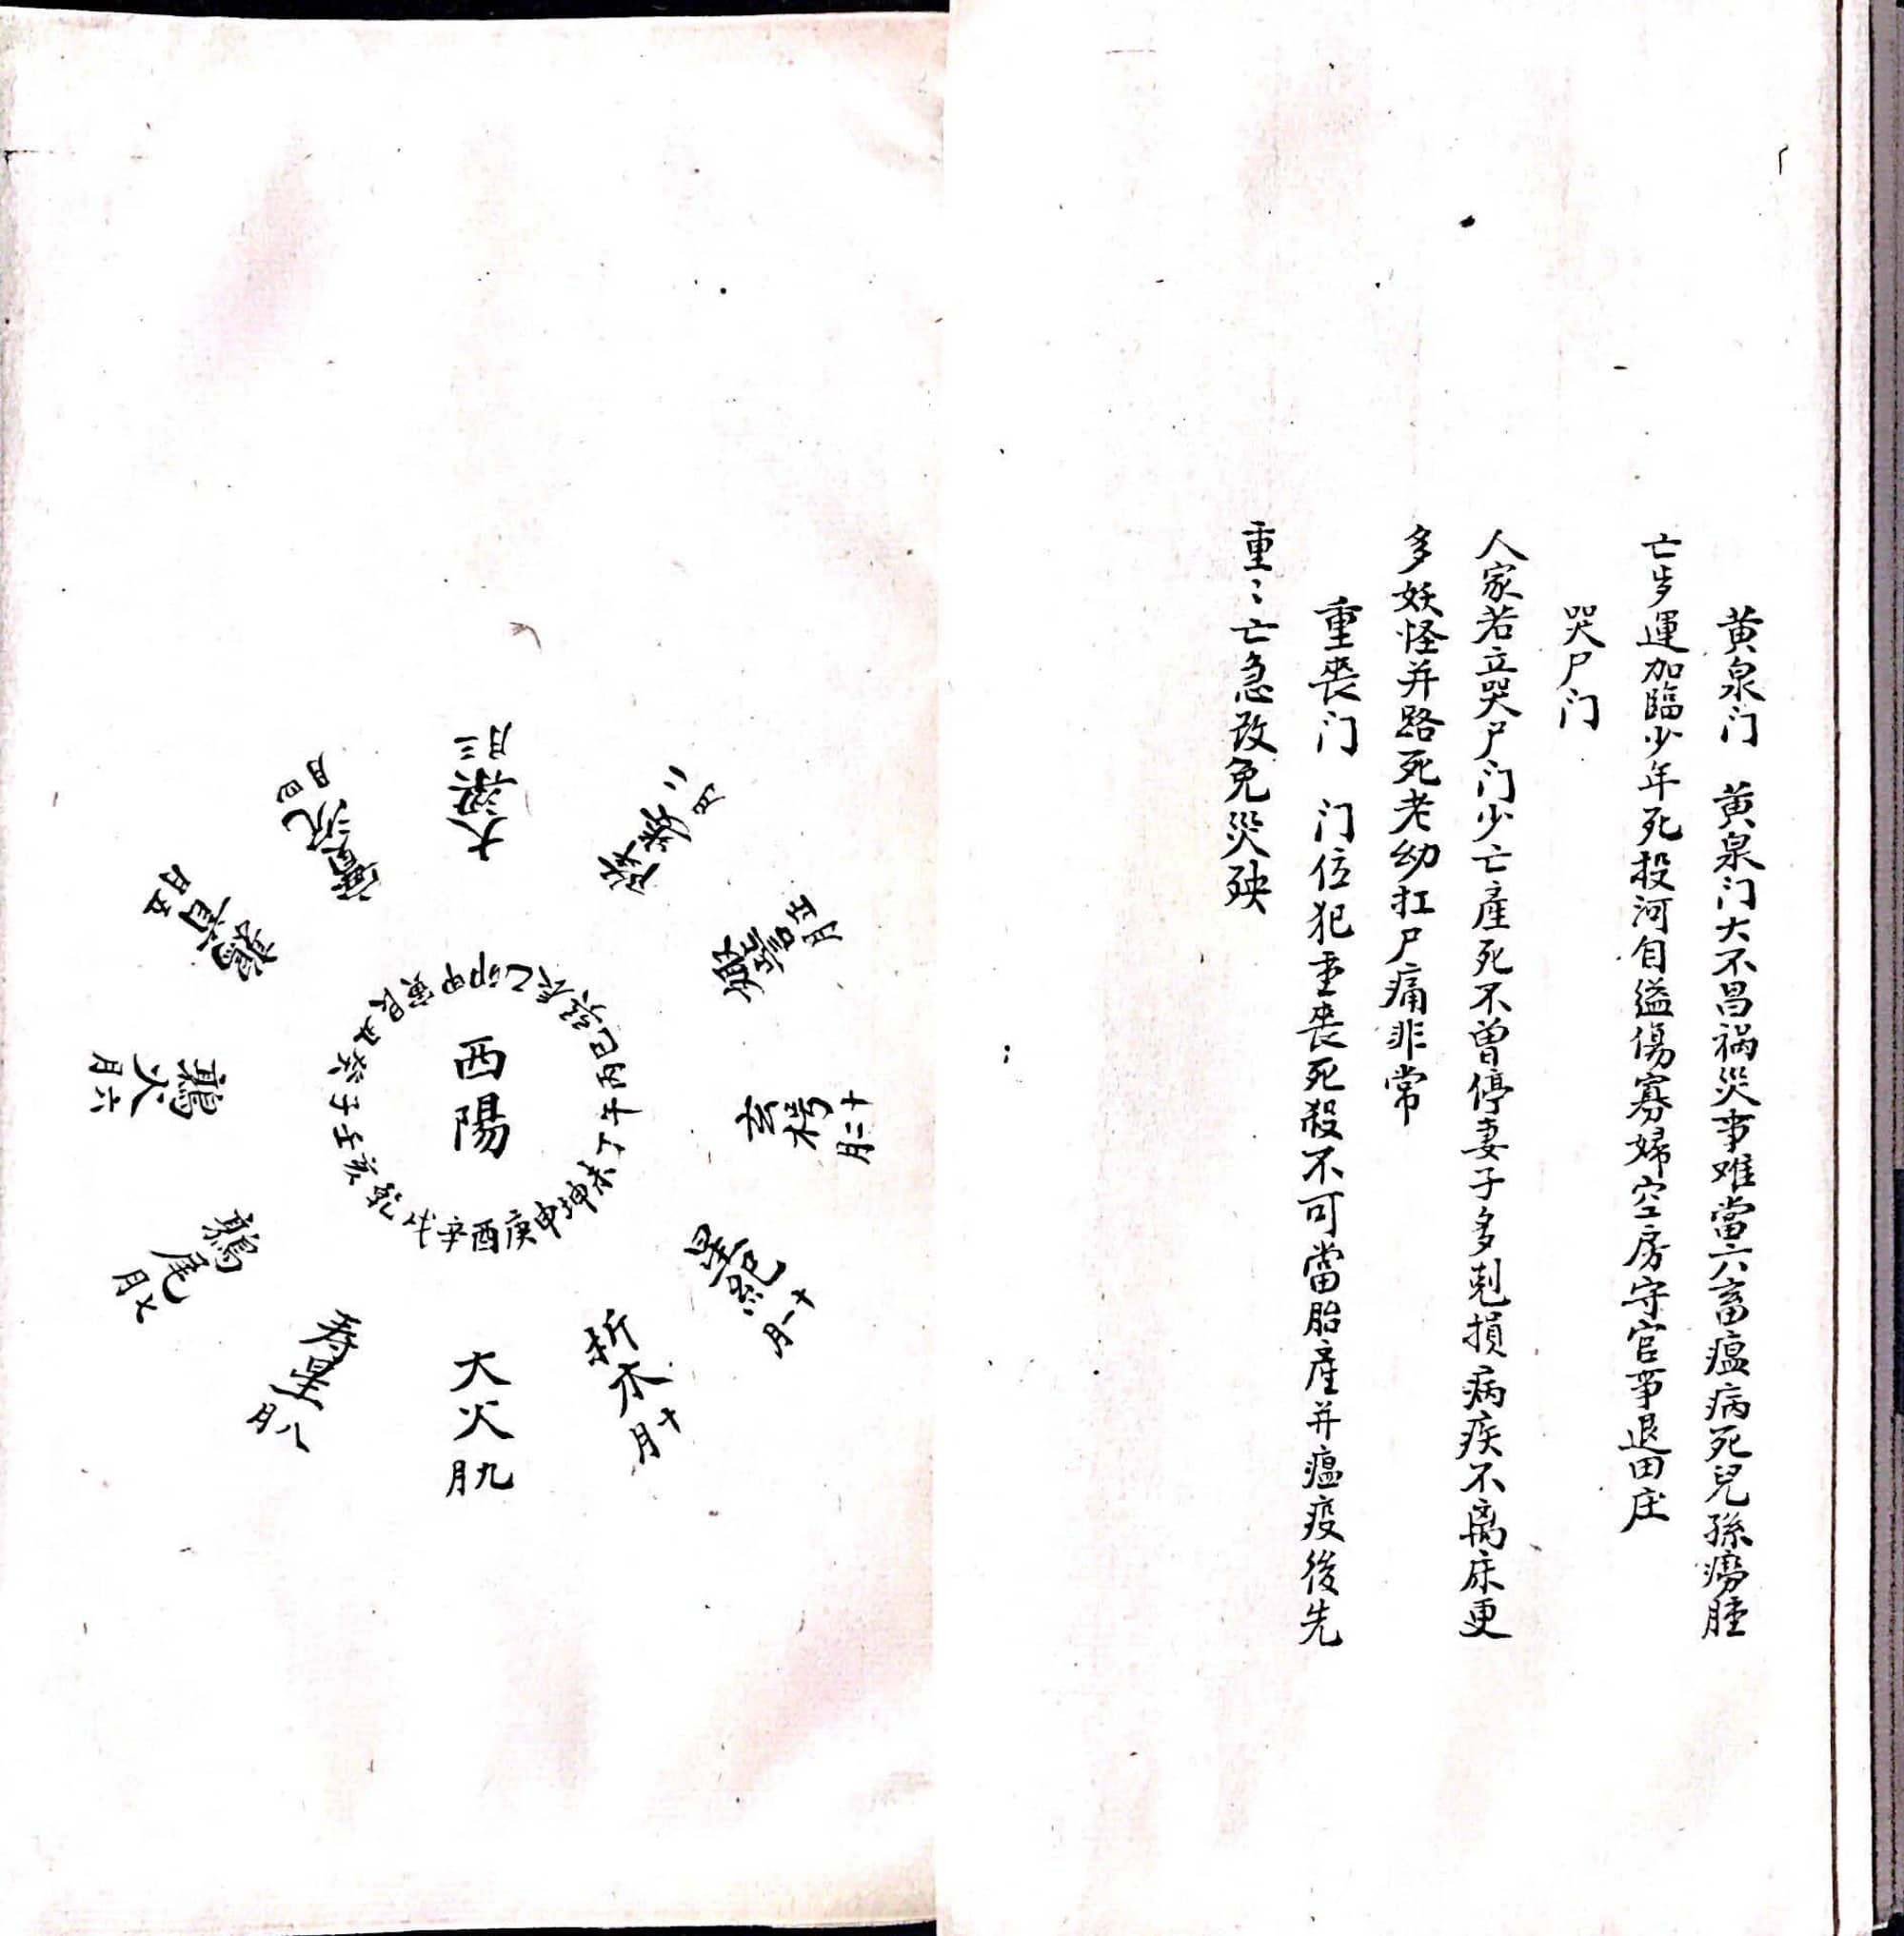 黄泉门　黄泉门大不昌祸災事难當六畜瘟病死兒孫癆腫
亡歩運加臨少年死投河自縊傷寡婦空房守官事退田庄
哭尸门
人家若立哭尸门少亡產死不曽停妻子多剋損病疾不离床更
多妖怪并路死老幼扛尸痛非常
重丧门　门位犯重丧死殺不可當胎產并瘟疫後先
重〻亡急改免災殃
西陽
乙卯甲寅艮丑癸子壬亥乾戌辛酉庚申坤未丁午丙巳巽辰
大梁 三月
降婁 二月
娵訾 正月
玄枵 十二月
星紀 十一月
析木 十月
大火 九月
寿星 八月
鶉尾 七月
鶉火 六月
鶉首 五月
實沉 四月